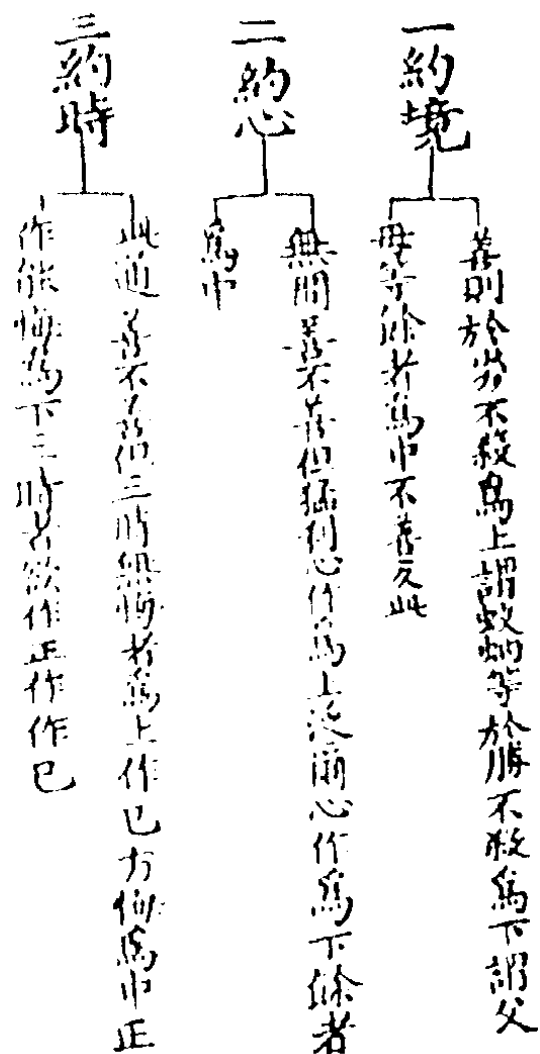 一約境
善則於劣不殺為上謂蚊蚋等於勝不殺為下謂父
母等餘者為中不善反此
二約心
無間善不善但猛利心作為上泛爾心作為下餘者
為中
三約時
此通善不善但三時無悔者為上作已方悔為中正
作能悔為下三時者欲作正作作已